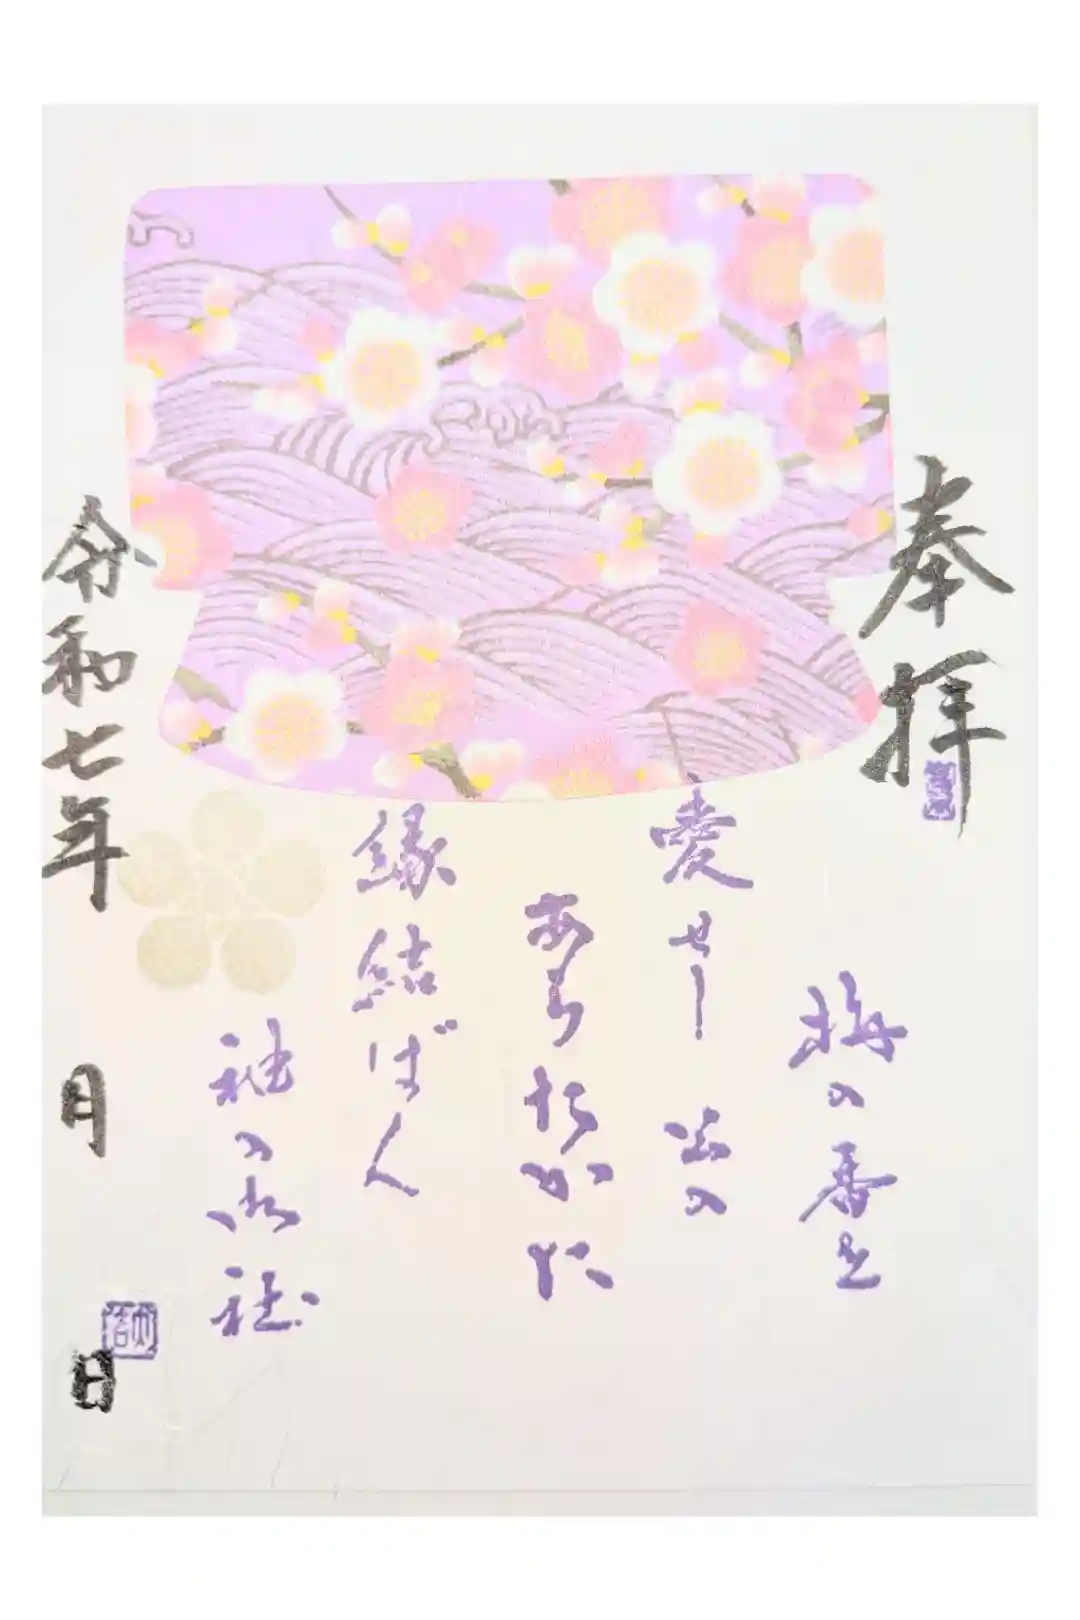 奉拝
梅の香を
愛せし公の
あらたかに
縁結ばん
袖の永社
令和七年 月 日